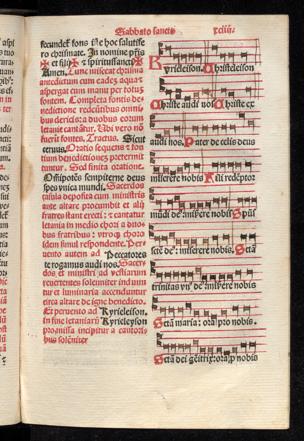 Sabbato sancto xciiij.
secundet͛ fons iste hoc salutife
ro chrismate. In nomine pr̄is
✠ et filij ✠ et spiritussancti ✠
Amen. Tunc misceat chrisma
antedictum cum eadez aqua et
aspergat eum manu per totuz
fontem. Completa fontis be-
nedictione redeuntibus omni
bus dericis: a duobus eorum
letanie cantātur. Ubi vero nō
fuerit fontes. Tractus. Sicut
ceruus. Oratio sequens z to-
tium benedictiones pretermit
tuntur. Sed finita oratione.
Omnipotēs sempiterne deus
spes vnica mundi. Sacerdos
casula deposita cum ministris
ante altare procumbit et alij
fratres stant erecti: z cantatur
letania in medio chori a duo
bus fratribus: vtroqz choro
idem simul respondente. Per-
uento autem ad Peccatores
te rogamus audi nos. Sacer
dos et ministri ad vestiarium
reuertentes solenniter induun
tur et luminaria accenduntur
circa altare de igne benedicto.
Et peruento ad Kyrieleison.
in fine letaniarū Kyrieleyson
pro missa incipitur a cantori
bus solēniter
Kyrieleison. Christeleison
Christe audi nos Christe ex
audi nos. Pater de celis deus
miserere nobis Fili redēptor
mūdi deꝰ miserere nobis Spūs
scte deꝰ: miserere nobis. Scta
trinitas vnꝰ deꝰ miserere nobis
Scta maria: ora pro nobis.
Scta dei genitrix: ora pro nobis